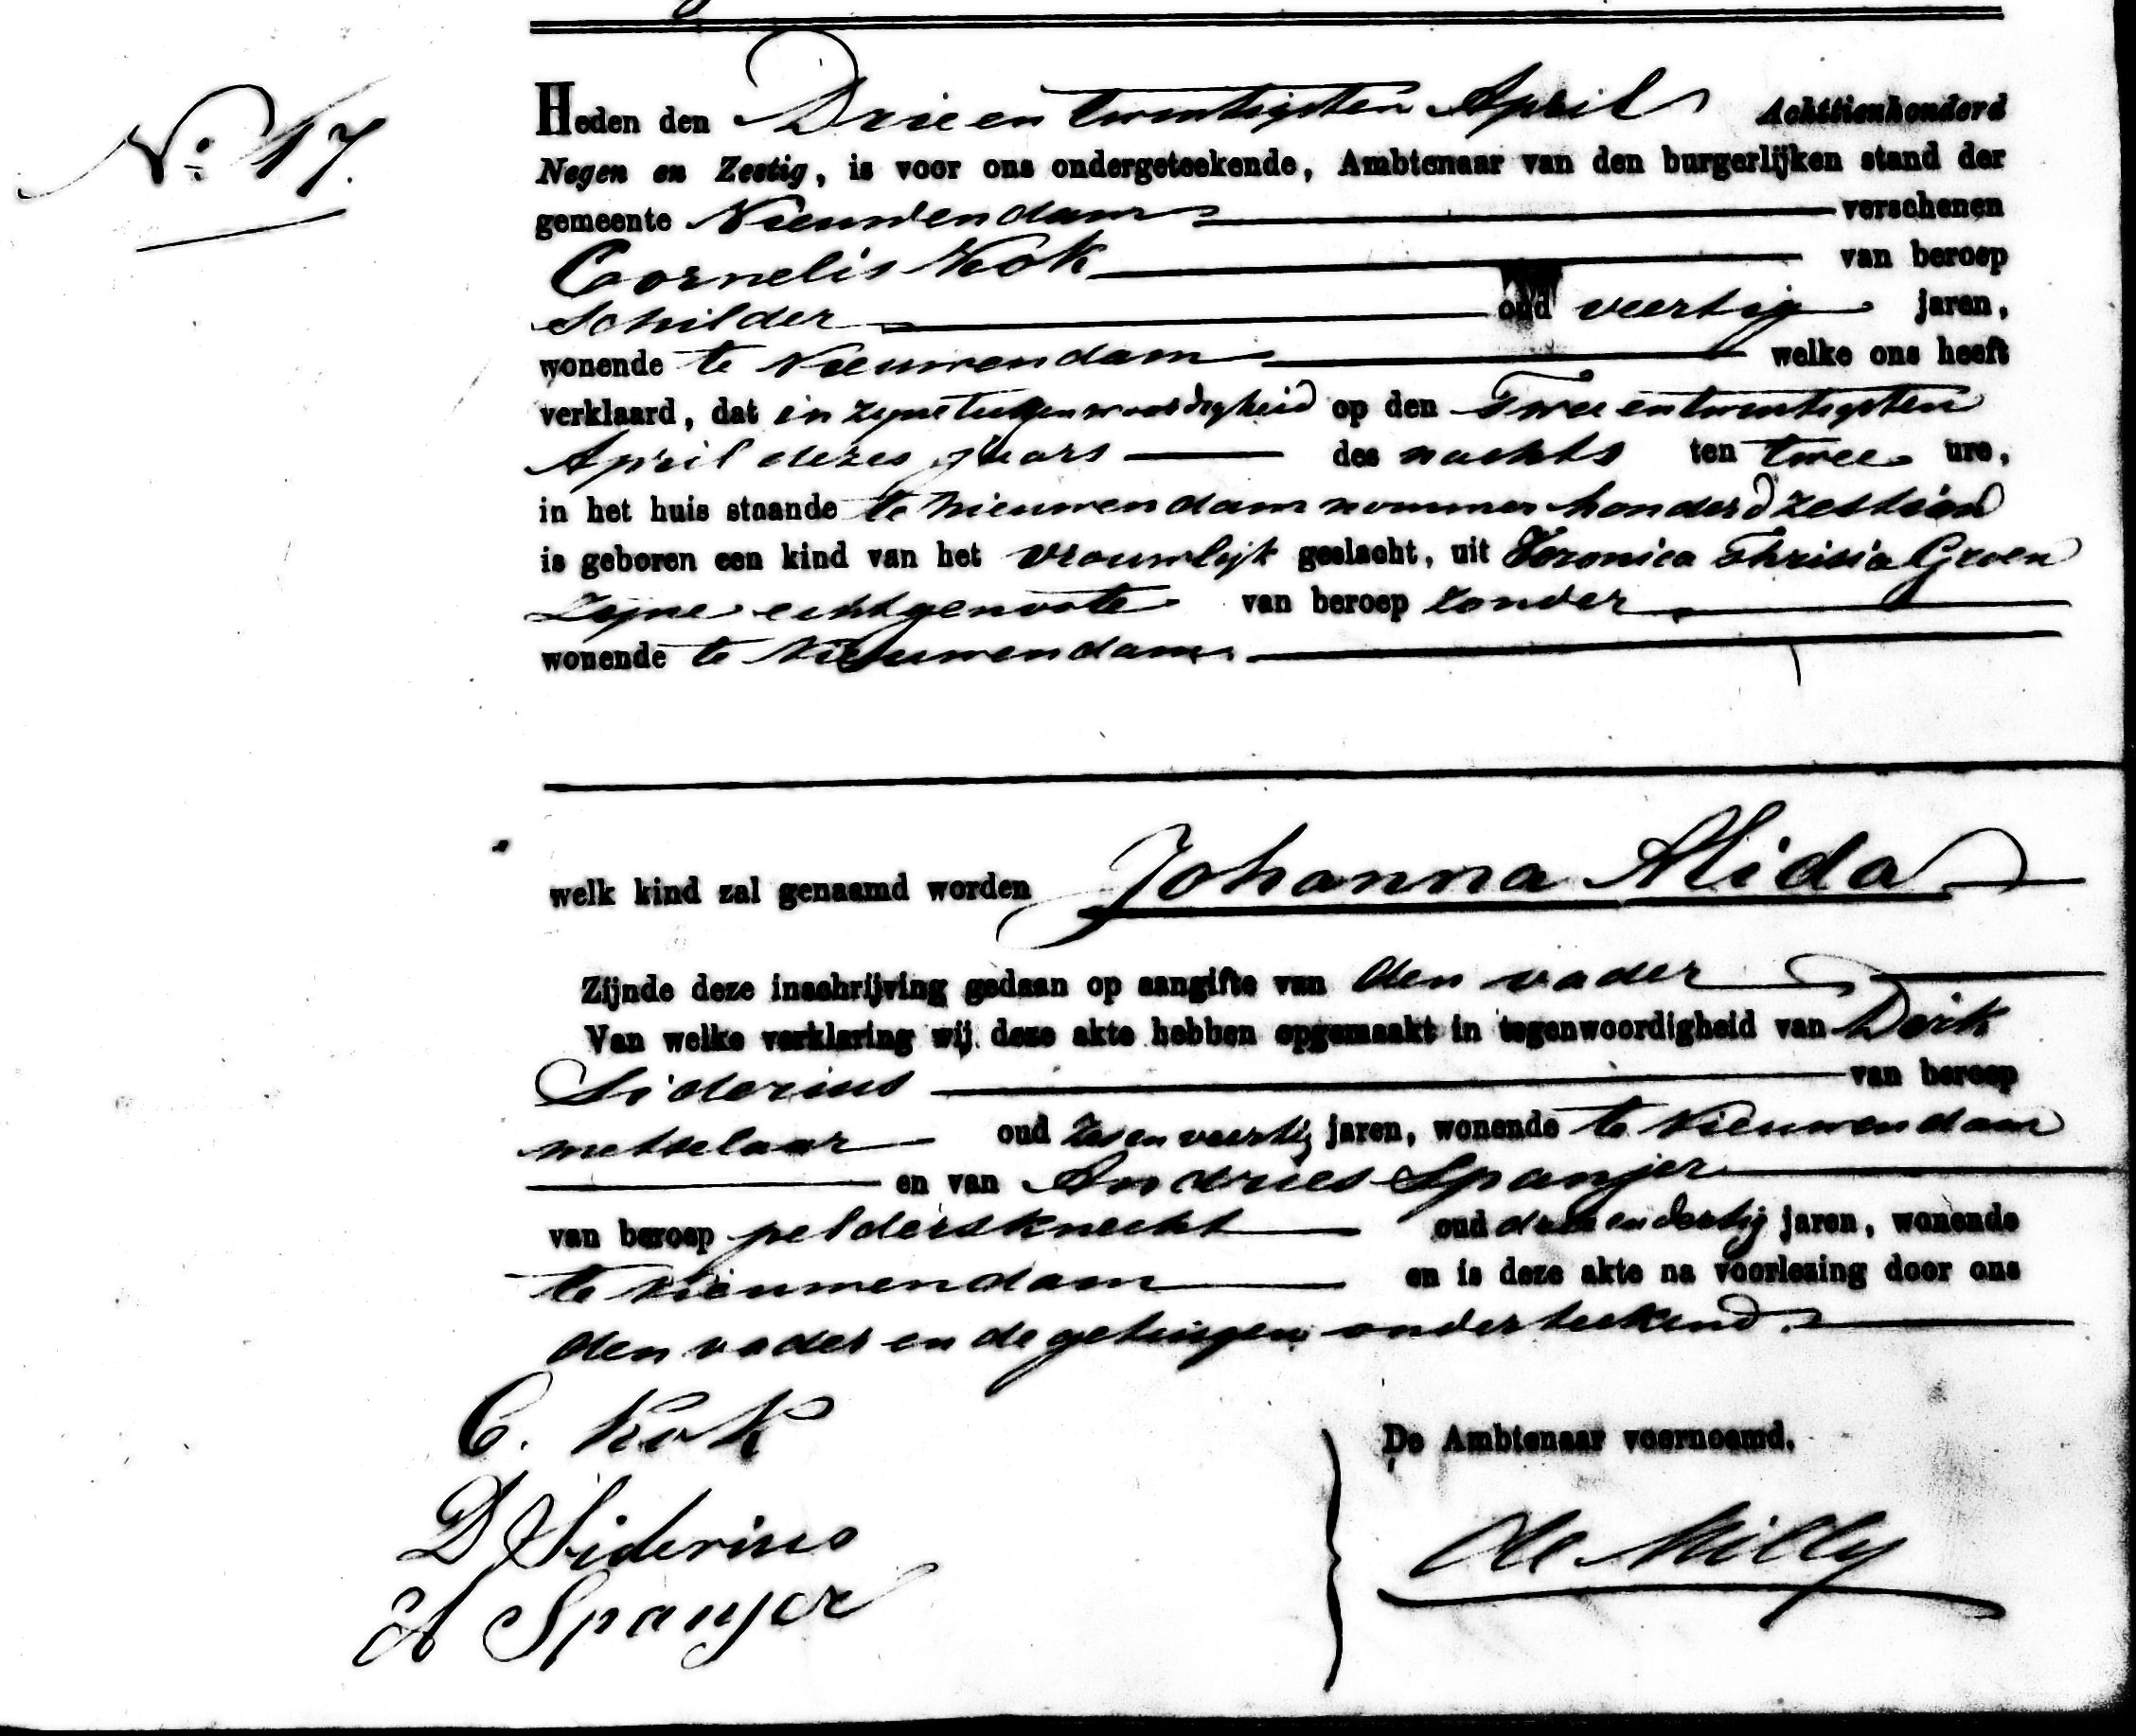 No: 17.
Heden den Drie en twintigsten April Achttienhonderd
Negen en Zestig, is voor ons ondergeteekende, Ambtenaar van den burgerlijken stand der
gemeente Nieuwendam verschenen
Cornelis Kok van beroep
Schilder oud veertig jaren,
wonende te Nieuwendam welke ons heeft
verklaard, dat in zijne tegenwoordigheid op den Twee en twintigsten
April dezes jaars des nachts ten twee ure,
in het huis staande te Nieuwendam nommer honderd zestien
is geboren een kind van het vrouwlijk geslacht, uit Veronica Groen
Zijne echtgenoote van beroep zonder
wonende te Nieuwendam
welk kind zal genaamd worden Johanna Alida
Zijnde deze inschrijving gedaan op aangifte van den vader
Van welke verklaring wij deze akte hebben opgemaakt in tegenwoordigheid van Dirk
Siderius van beroep
metselaar oud zes en veertig jaren, wonende te Nieuwendam
en van Andries Spanjer
van beroep peldersknecht oud drie en dertig jaren, wonende
te Nieuwendam en is deze akte na voorlezing door ons
den vader en de getuigen onderteekend.
C. Kok
De Ambtenaar voornoemd.
D Siderius
de Milly
A Spanjer